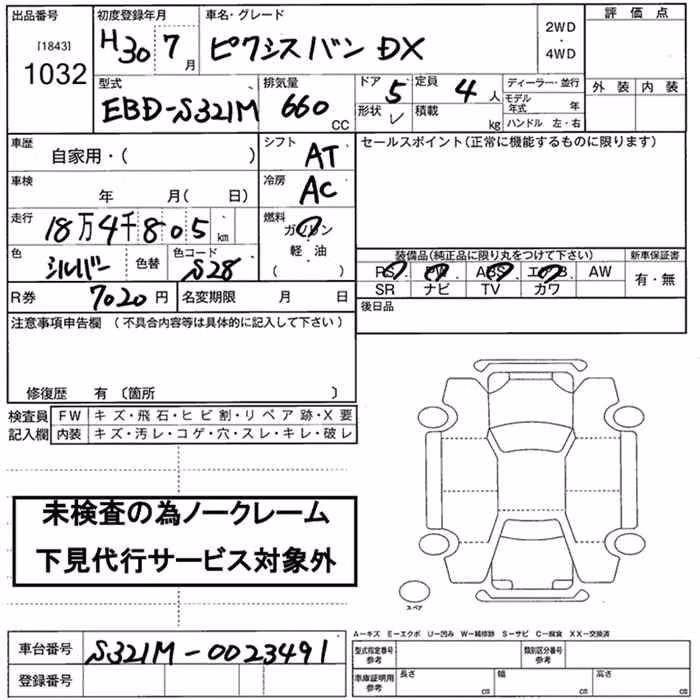 出品番号 初度登録年月 車名・グレード 評価点
[1843]
1032 H30 7月 ピクシスバン DX 2WD・4WD
外装 内装
型式 排気量 ドア 定員 ディーラー・並行
EBD-S321M 660 CC 5 4人 モデル年式 年
形状 V 積載 kg ハンドル 左・右
車歴 自家用・( ) シフト AT セールスポイント(正常に機能するものに限ります)
車検 年 月( 日) 冷房 AC
走行 18万4千805km 燃料 ガソリン
軽油
( )
色 シルバー 色替 色コード S28
装備品(純正品に限り丸をつけて下さい) 新車保証書
PS PW ABS エアB AW 有・無
SR ナビ TV カワ
R券 7020円 名変期限 月 日 後日品
注意事項申告欄 (不具合内容等は具体的に記入して下さい)
修復歴 有 〔箇所 〕
検査員 FW キズ・飛石・ヒビ割・リペア跡・X要
記入欄 内装 キズ・汚レ・コゲ・穴・スレ・キレ・破レ
未検査の為ノークレーム
下見代行サービス対象外
スペア
A−キズ E−エクボ U−凹み W−補修跡 S−サビ C−腐食 XX−交換済
車台番号 S321M-0023491 型式指定番号 参考 類別区分番号 参考
登録番号 車庫証明用 参考 長さ cm 幅 cm 高さ cm